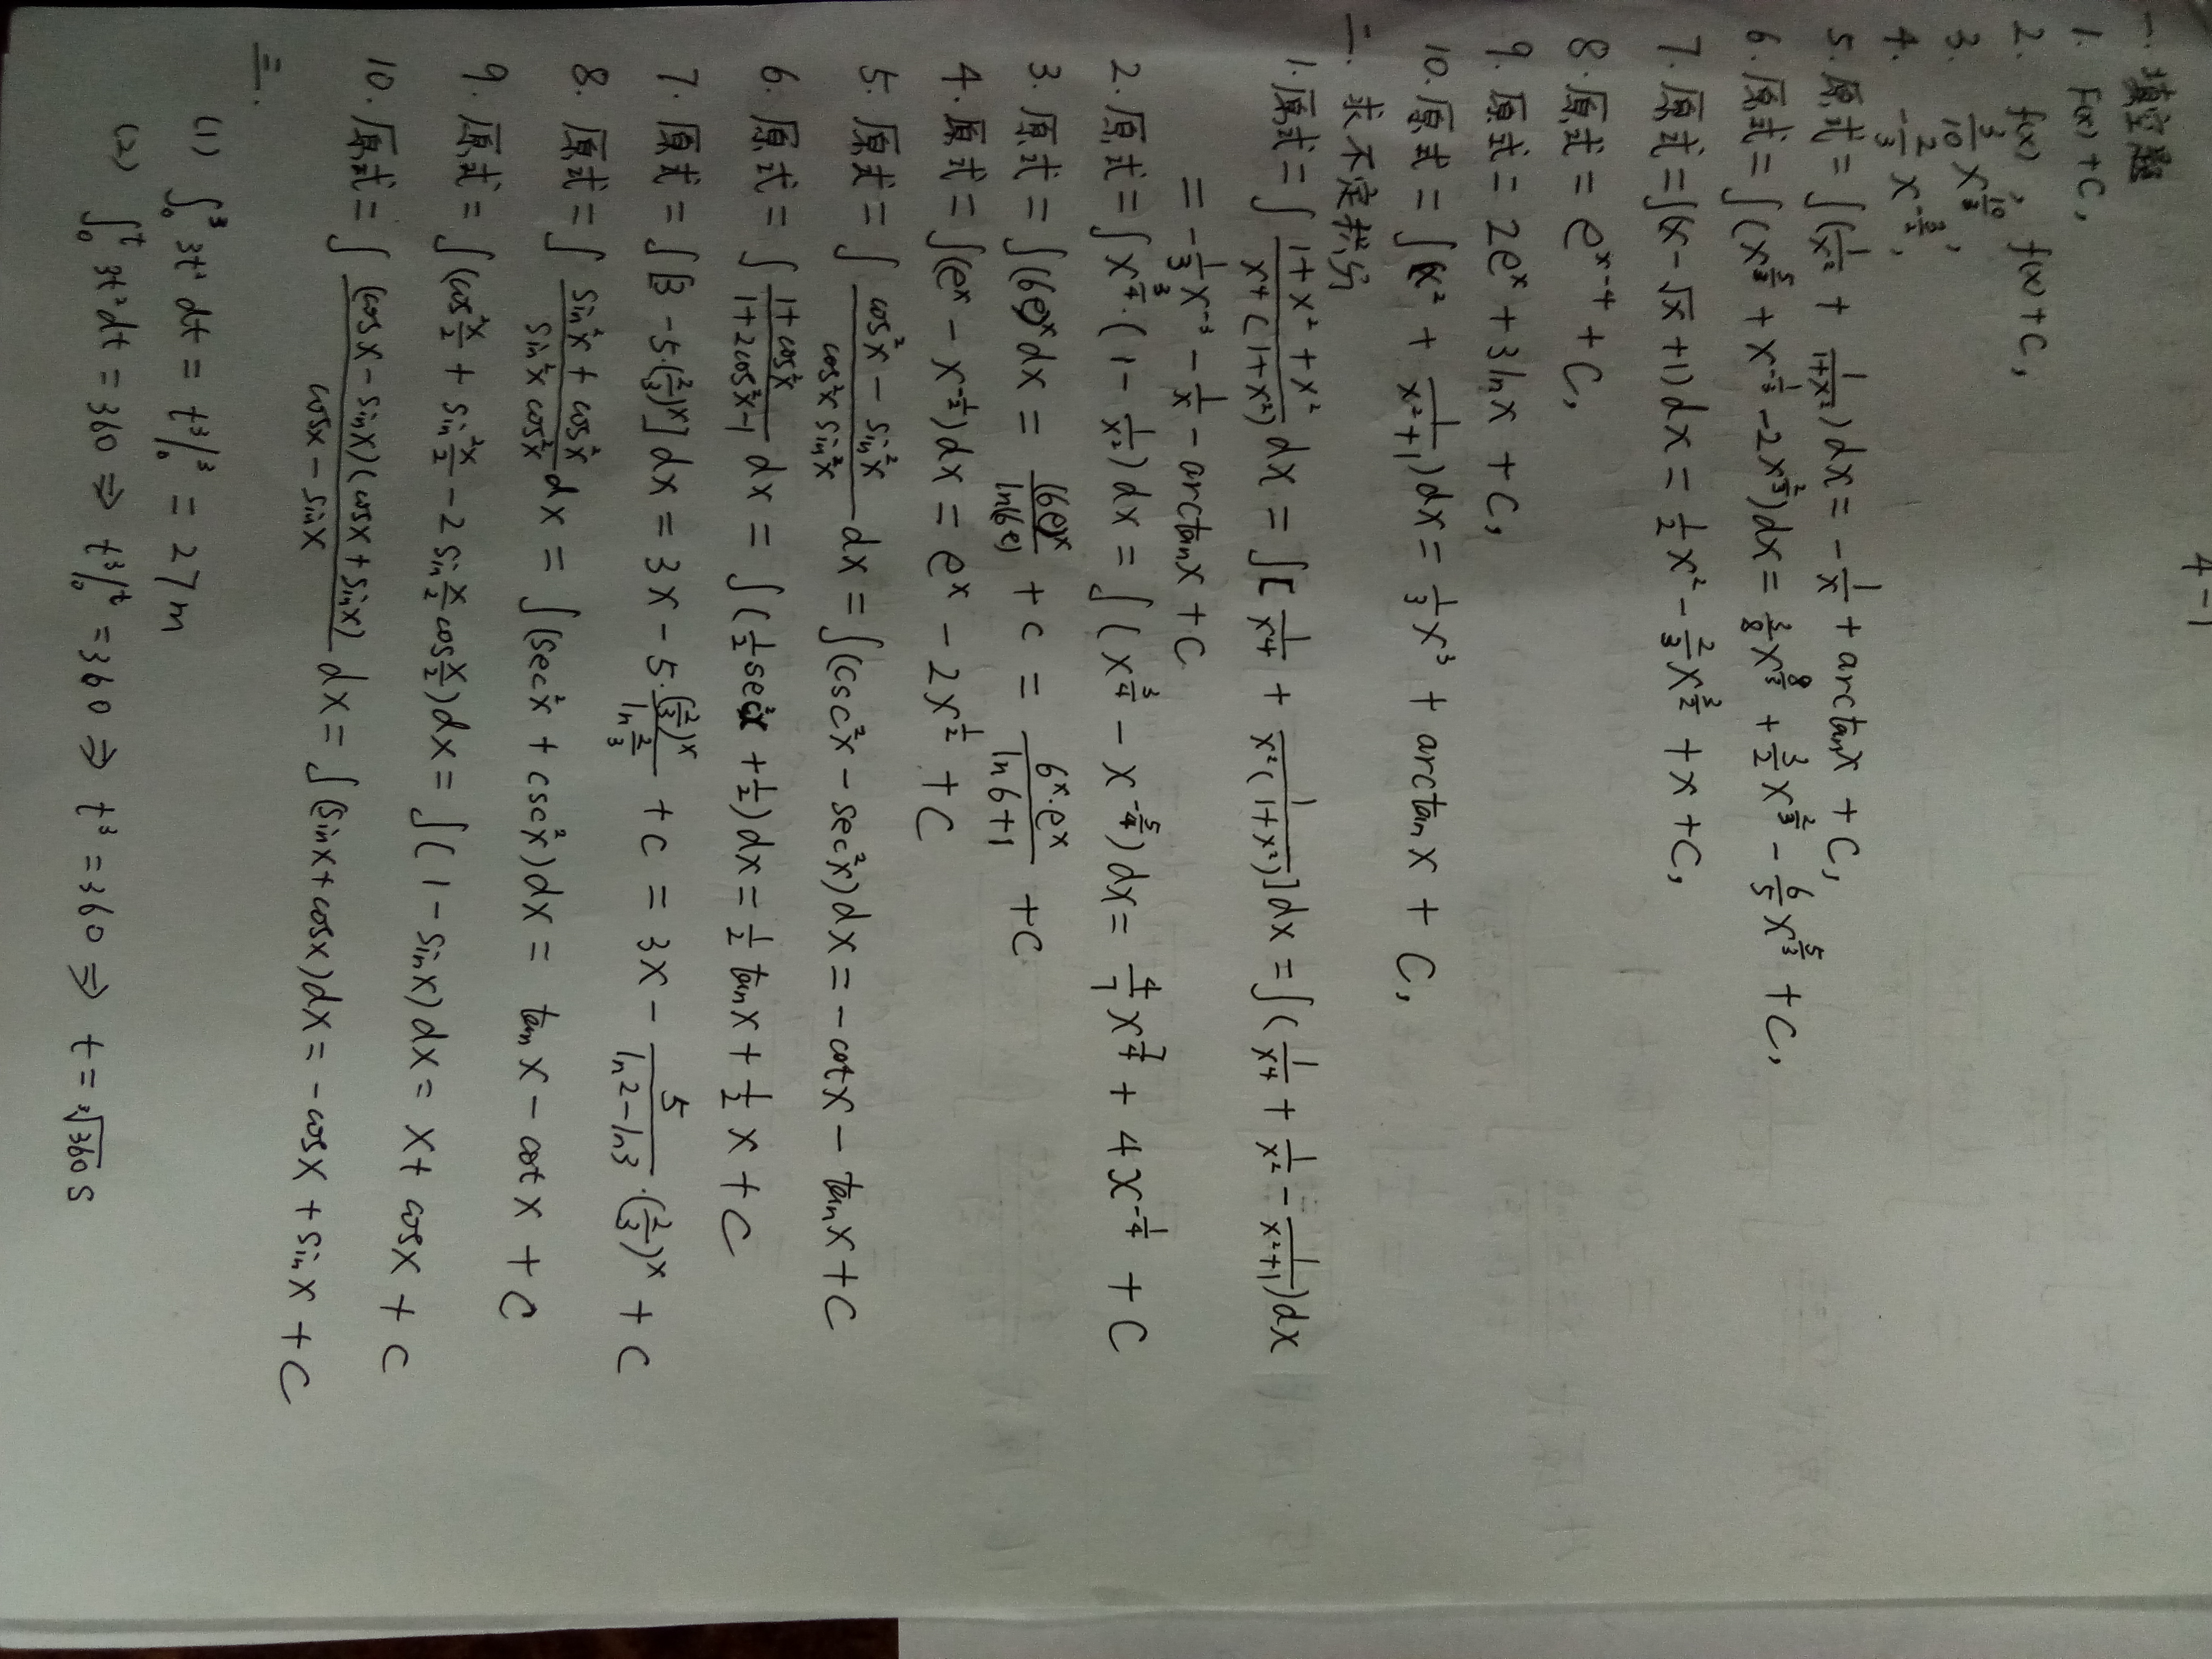 4-1
一.填空题
1. F(x)+C,
2. f(x), f(x)+C,
3. 3/10 x^{10/3},
4. -2/3 x^{-3/2},
5. 原式=∫(1/x²+1/(1+x²))dx=-1/x+arctanx+C,
6. 原式=∫(x^{5/3}+x^{-1/3}-2x^{2/3})dx=3/8 x^{8/3}+3/2 x^{2/3}-6/5 x^{5/3}+C,
7. 原式=∫(x-√x+1)dx=1/2 x²-2/3 x^{3/2}+x+C,
8. 原式=e^{x-4}+C,
9. 原式=2e^x+3lnx+C,
10. 原式=∫(x²+1/(x²+1))dx=1/3 x³+arctanx+C,
二.求不定积分
1. 原式=∫(1+x²+x²)/(x⁴(1+x²))dx=∫[1/x⁴+1/(x²(1+x²))]dx=∫(1/x⁴+1/x²-1/(x²+1))dx
=-1/3 x^{-3}-1/x-arctanx+C
2. 原式=∫x^{3/4}·(1-1/x²)dx=∫(x^{3/4}-x^{-5/4})dx=4/7 x^{7/4}+4x^{-1/4}+C
3. 原式=∫(6e)^x dx=(6e)^x/ln(6e)+C=6^x·e^x/(ln6+1)+C
4. 原式=∫(e^x-x^{-1/2})dx=e^x-2x^{1/2}+C
5. 原式=∫(cos²x-sin²x)/(cos²x sin²x)dx=∫(csc²x-sec²x)dx=-cotx-tanx+C
6. 原式=∫(1+cos²x)/(1+2cos²x-1)dx=∫(1/2 sec²x+1/2)dx=1/2 tanx+1/2 x+C
7. 原式=∫[3-5·(2/3)^x]dx=3x-5·(2/3)^x/ln(2/3)+C=3x-5/(ln2-ln3)·(2/3)^x+C
8. 原式=∫(sin²x+cos²x)/(sin²x cos²x)dx=∫(sec²x+csc²x)dx=tanx-cotx+C
9. 原式=∫(cos²x/2+sin²x/2-2sin x/2 cos x/2)dx=∫(1-sinx)dx=x+cosx+C
10. 原式=∫(cosx-sinx)(cosx+sinx)/(cosx-sinx)dx=∫(sinx+cosx)dx=-cosx+sinx+C
三.
(1) ∫₀³3t²dt=t³|₀³=27m
(2) ∫₀ᵗ3t²dt=360⇒t³|₀ᵗ=360⇒t³=360⇒t=∛360 s